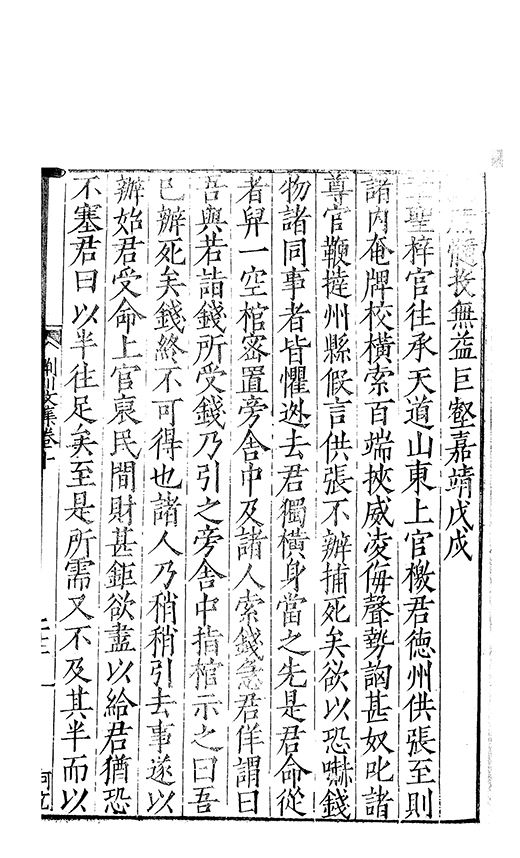 髓投無益巨壑嘉靖戊戌
聖梓宮往承天道山東上官檄君德州供張至則
諸內奄牌校橫索百端挾威凌侮聲勢訩甚奴叱諸
尊官鞭撻州縣假言供張不辦捕死矣欲以恐嚇錢
物諸同事者皆懼迯去君獨橫身當之先是君命從
者舁一空棺密置旁舍中及諸人索錢急君佯謂曰
吾與若詣錢所受錢乃引之旁舍中指棺示之曰吾
已辦死矣錢終不可得也諸人乃稍稍引去事遂以
辦始君受命上官裒民間財甚鉅欲盡以給君猶恐
不塞君曰以半往足矣至是所需又不及其半而以
荆川文集卷十